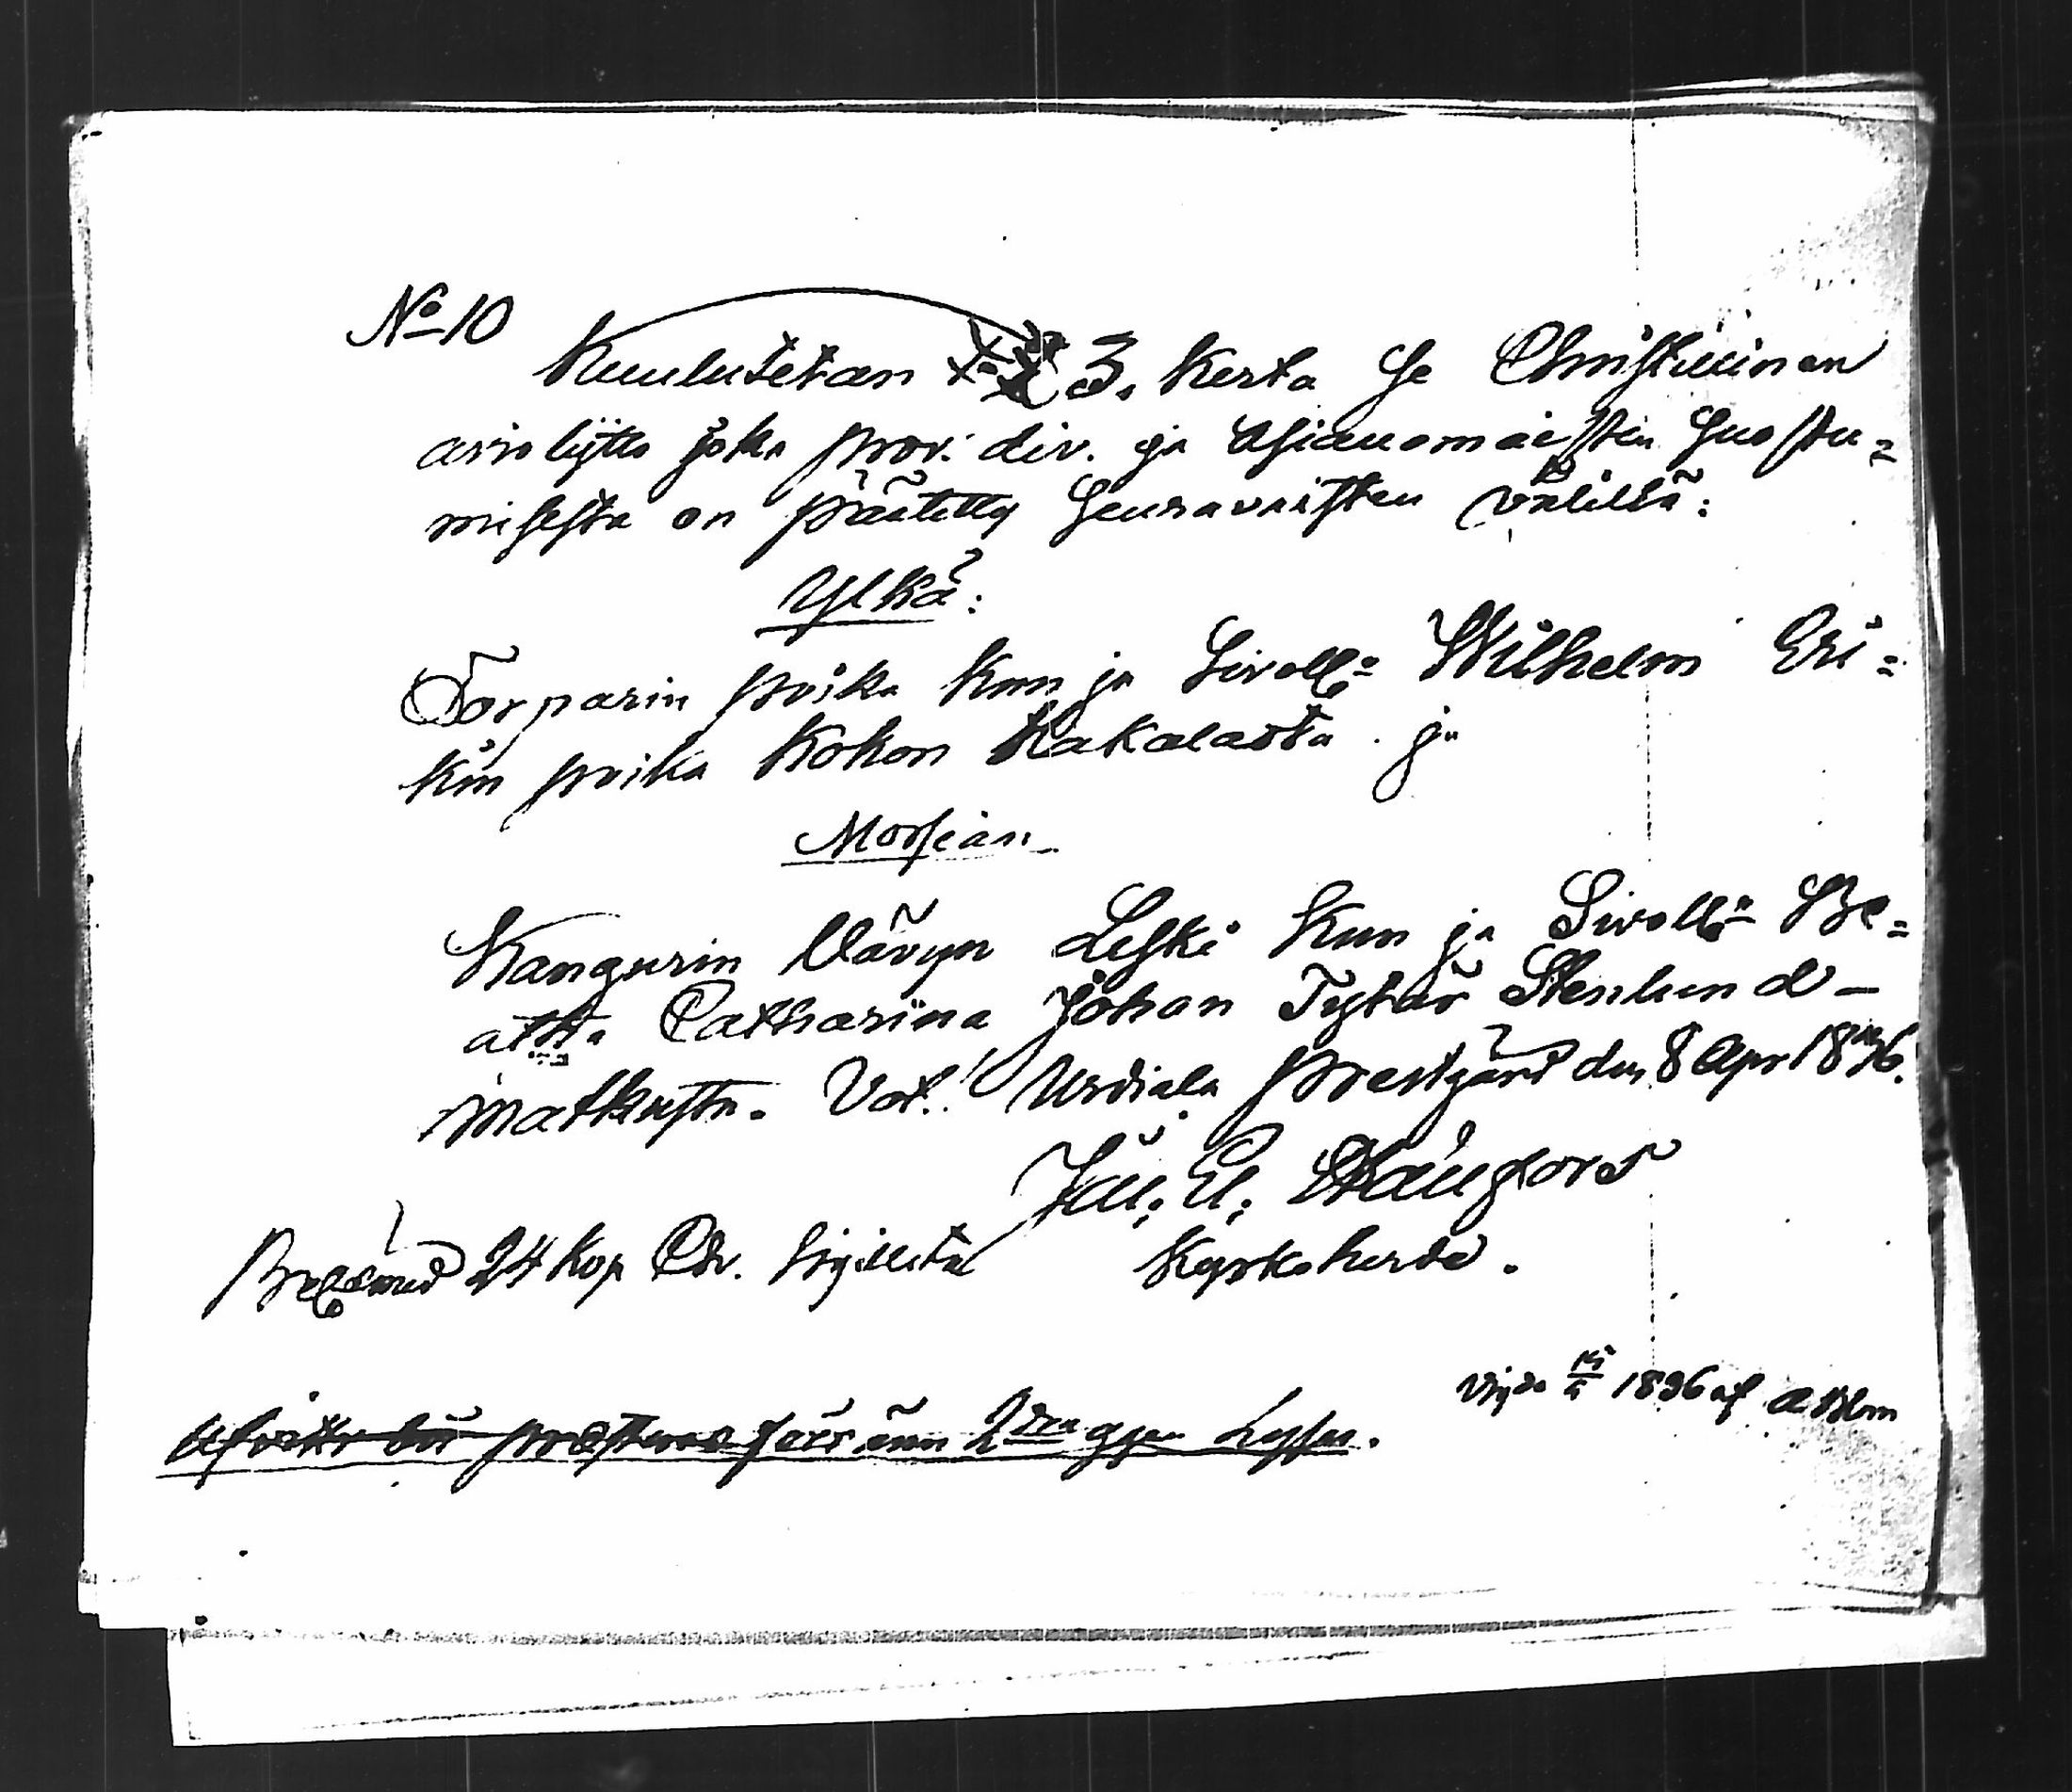 No 10
Kuulutetan 3. kerta se Christilinen
avioliјtto joka prov. div. ja Asianomaisten suostu=
misesta on päätetty seuravaisten välillä:
Ylkä:
Torparin poika Kun ja Sivoll: Wilhelm Eri=
kin poika Kokon Kakalasta. ja
Morsian
Kangurin Vävyn Leski Kun ja Sivoll: Be=
atta Catharina Johan Tytär Stenlund
Matkusta. Vot! Urdiala prestgård den 8 Apr 1836.
Kyrkoherde.
med 24 kop Ch. Sigillata
Vigde 1836 af
2dra gån Lysn.